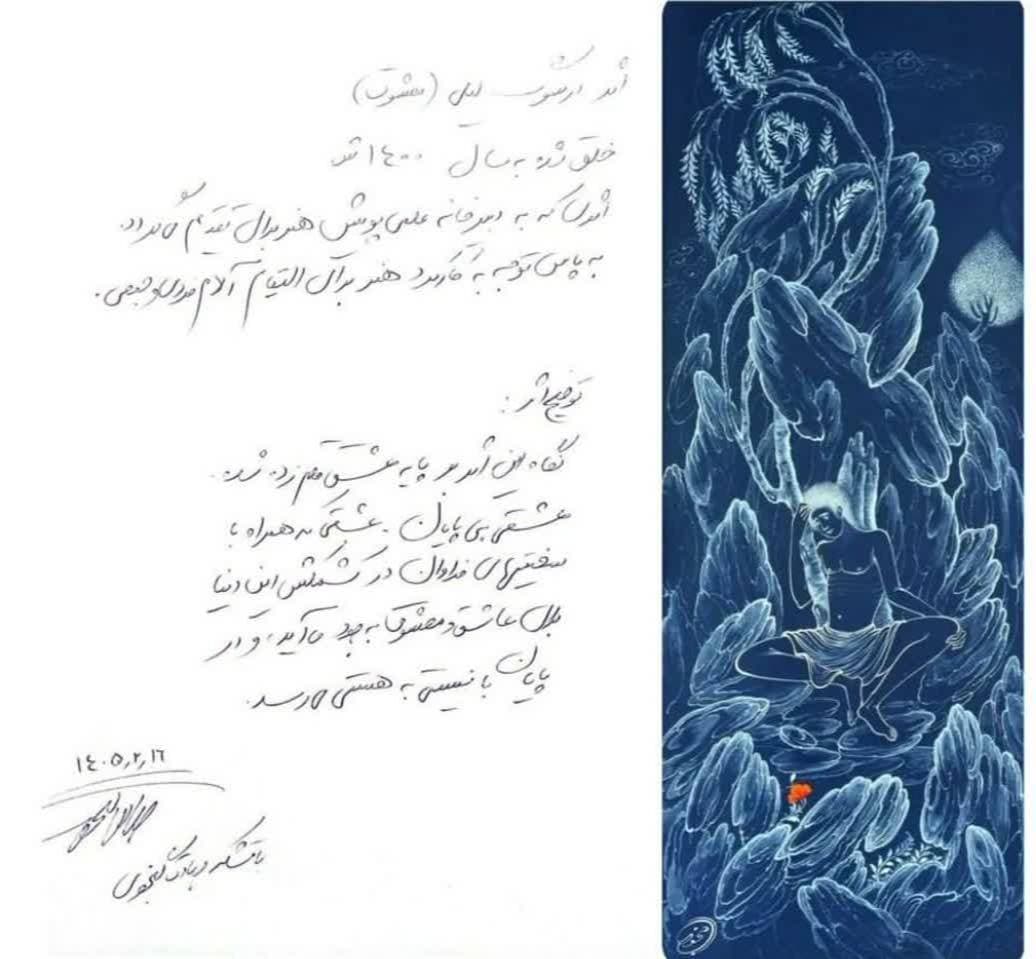 اثر از سوی لیلی (معشوق)
خلق شده به سال ۱۴۰۰ شد
اثری که به دبیرخانه علمی پویش هنر برای تقدیم می‌گردد.
به پاس توجه به کاربرد هنر برای التیام آلام مردان و جمعی.
توضیح اثر:
نگاه این اثر بر پایه عشق قلم زده شده.
عشقی بی پایان. عشقی که همراه با
سختیهای فراوان در کشمکش این دنیا
برای عاشق و معشوق به وجود می‌آید، و در
پایان با نیستی به هستی می‌رسد.
۱۴۰۵٫۲٫۱۶
با تشکر